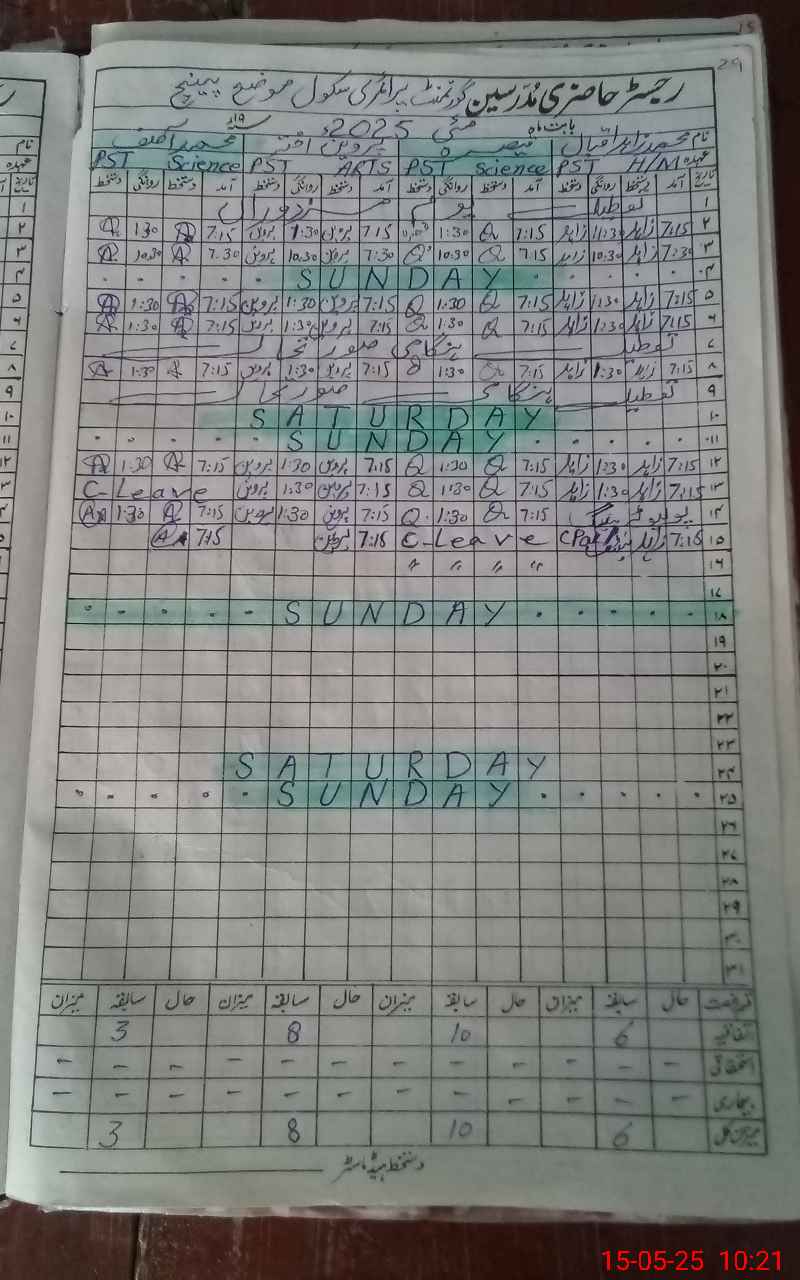 29
رجسٹر حاضری مُدرسین گورنمنٹ پرائمری سکول موضع
بابت ماہ مئی 2025ء
نام محمد زاہد اقبال قیصرہ پروین اختر محمد آصف
عہدہ PST H/M PST Science PST ARTS PST Science
تاریخ آمد دستخط روانگی دستخط آمد دستخط روانگی دستخط آمد دستخط روانگی دستخط آمد دستخط روانگی دستخط
۱ تعطیل یوم مزدوراں
۲ 7:15 زاہد 11:30 زاہد 7:15 Q 1:30 7:15 پروین 1:30 پروین 7:15 A 1:30 A
۳ 7:30 زاہد 10:30 زاہد 7:15 Q 10:30 Q 7:30 پروین 10:30 پروین 7:30 A 10:30 A
۴ SUNDAY
۵ 7:15 زاہد 1:30 زاہد 7:15 Q 1:30 Q 7:15 پروین 1:30 پروین 7:15 A 1:30 A
۶ 7:15 زاہد 1:30 زاہد 7:15 Q 1:30 Q 7:15 پروین 1:30 پروین 7:15 A 1:30 A
۷ تعطیل ہنگامی صورتحال
۸ 7:15 زاہد 1:30 زاہد 7:15 Q 1:30 Q 7:15 پروین 1:30 پروین 7:15 A 1:30 A
۹ تعطیل ہنگامی صورتحال
۱۰ SATURDAY
۱۱ SUNDAY
۱۲ 7:15 زاہد 1:30 زاہد 7:15 Q 1:30 Q 7:15 پروین 1:30 پروین 7:15 A 1:30 A
۱۳ 7:15 زاہد 1:30 زاہد 7:15 Q 1:30 Q 7:15 پروین 1:30 پروین C-Leave
۱۴ پولیو 7:15 Q 1:30 Q 7:15 پروین 1:30 پروین 7:15 A 1:30 A
۱۵ 7:15 زاہد C-Leave 7:15 پروین 7:15 A
۱۶ " " " "
۱۷
۱۸ SUNDAY
۱۹
۲۰
۲۱
۲۲
۲۳
۲۴ SATURDAY
۲۵ SUNDAY
۲۶
۲۷
۲۸
۲۹
۳۰
۳۱
رخصت حال سابقہ میزان حال سابقہ میزان حال سابقہ میزان حال سابقہ میزان
اتفاقیہ 6 10 8 3
استحقاقی - - - - - - - - - - - -
بیماری - - - - - - - - - - - -
میزان کل 6 10 8 3
دستخط ہیڈ ماسٹر
15-05-25 10:21